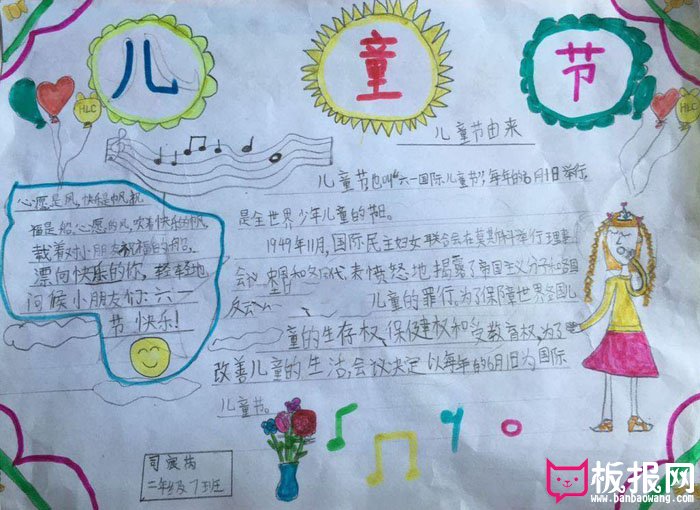 儿 童 节
HLC
HLC
儿童节由来
儿童节也叫“六一国际儿童节”，每年的6月1日举行
是全世界少年儿童的节日。
1949年11月，国际民主妇女联合会在莫斯科举行理事
会议 中国和各国代表愤怒地揭露了帝国主义分子和各国
反动
儿童的罪行。为了保障世界各国儿
童的生存权、保健权和受教育权，为了
改善儿童的生活，会议决定以每年的6月1日为国际
儿童节。
心愿是风，快乐是帆，祝
福是船。心愿的风，吹着快乐的帆
载着对小朋友祝福的船
漂向快乐的你，轻轻地
问候小朋友们：六一
节快乐！
二年级7班
板报网
www.banbaowang.com